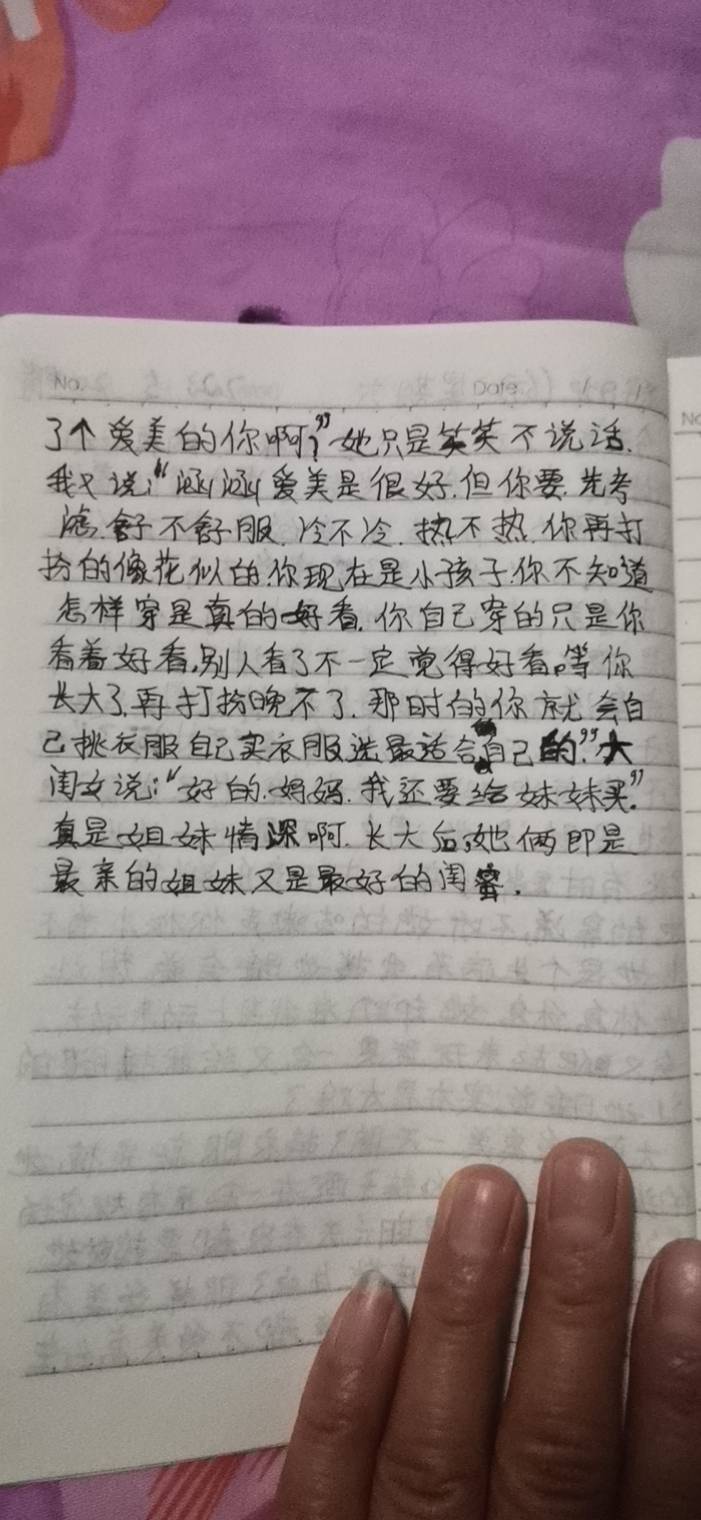 No.
Date
No
了个爱美的你啊？”她只是笑笑不说话.
我又说：“涵涵爱美是很好.但你要.先考
虑.舒不舒服.冷不冷.热不热.你再打
扮的像花似的.你现在是小孩子.你不知道
怎样穿是真的好看.你自己穿的只是你
看着好看,别人看了不一定觉得好看。等你
长大了.再打扮晚不了.那时的你就会自
己挑衣服自己买衣服选最适合自己的.”大
闺女说：“好的.妈妈.我还要给妹妹买.”
真是姐妹情深啊.长大后,她俩即是
最亲的姐妹又是最好的闺蜜.